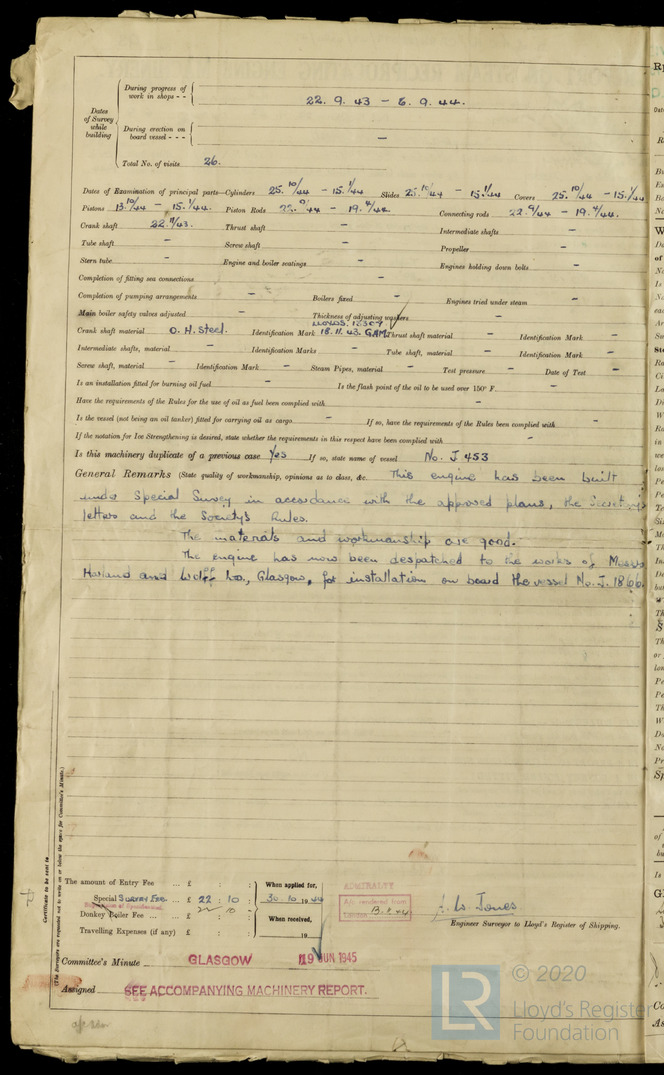 Dates of Survey while building
During progress of work in shops - - 22. 9. 43 - 6. 9. 44.
During erection on board vessel - - - -
Total No. of visits 26.
Dates of Examination of principal parts—Cylinders 25. 10/44 - 15. 1/44 Slides 25. 10/44 - 15. 1/44 Covers 25. 10/44 - 15. 1/44
Pistons 13. 10/44 - 15. 1/44. Piston Rods 22. 9/44 - 19. 4/44. Connecting rods 22. 9/44 - 19. 4/44.
Crank shaft 22. 11/43. Thrust shaft - Intermediate shafts -
Tube shaft - Screw shaft - Propeller -
Stern tube - Engine and boiler seatings - Engines holding down bolts -
Completion of fitting sea connections -
Completion of pumping arrangements - Boilers fixed - Engines tried under steam -
Main boiler safety valves adjusted - Thickness of adjusting washers -
Crank shaft material O. H. Steel. Identification Mark LLOYDS. 12309 18. 11. 43. GAM. Thrust shaft material - Identification Mark -
Intermediate shafts, material - Identification Marks - Tube shaft, material - Identification Mark -
Screw shaft, material - Identification Mark - Steam Pipes, material - Test pressure - Date of Test -
Is an installation fitted for burning oil fuel - Is the flash point of the oil to be used over 150° F. -
Have the requirements of the Rules for the use of oil as fuel been complied with -
Is the vessel (not being an oil tanker) fitted for carrying oil as cargo - If so, have the requirements of the Rules been complied with -
If the notation for Ice Strengthening is desired, state whether the requirements in this respect have been complied with -
Is this machinery duplicate of a previous case Yes If so, state name of vessel No. J 453
General Remarks (State quality of workmanship, opinions as to class, &c. This engine has been built
under Special Survey in accordance with the approved plans, the Secretary's
letters and the Society's Rules.
The materials and workmanship are good.
The engine has now been despatched to the works of Messrs
Harland and Wolff Ld., Glasgow, for installation on board the vessel No. J. 1866.
Certificate to be sent to
(The Surveyors are requested not to write on or below the space for Committee's Minute.)
The amount of Entry Fee ... £ : : When applied for,
Special Survey Fee ... £ 22 : 10 : 30. 10. 1944
Donkey Boiler Fee ... £ : : When received,
Travelling Expenses (if any) £ : : 19
ADMIRALTY
A/c rendered from
Engineer Surveyor to Lloyd's Register of Shipping.
Committee's Minute GLASGOW 19 JUN 1945
Assigned SEE ACCOMPANYING MACHINERY REPORT.
LR © 2020
Lloyd's Register
Foundation